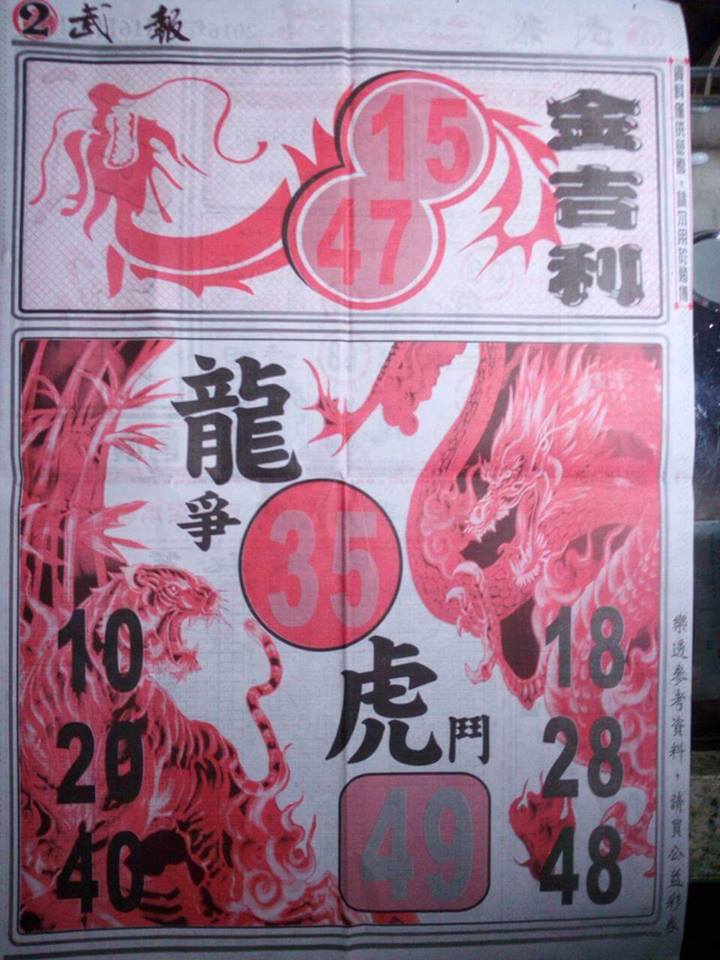 2 武報
金吉利
15
47
資料僅供參考，請勿用於賭博
龍爭
35
虎鬥
49
10
20
40
18
28
48
樂透參考資料，請買公益彩券